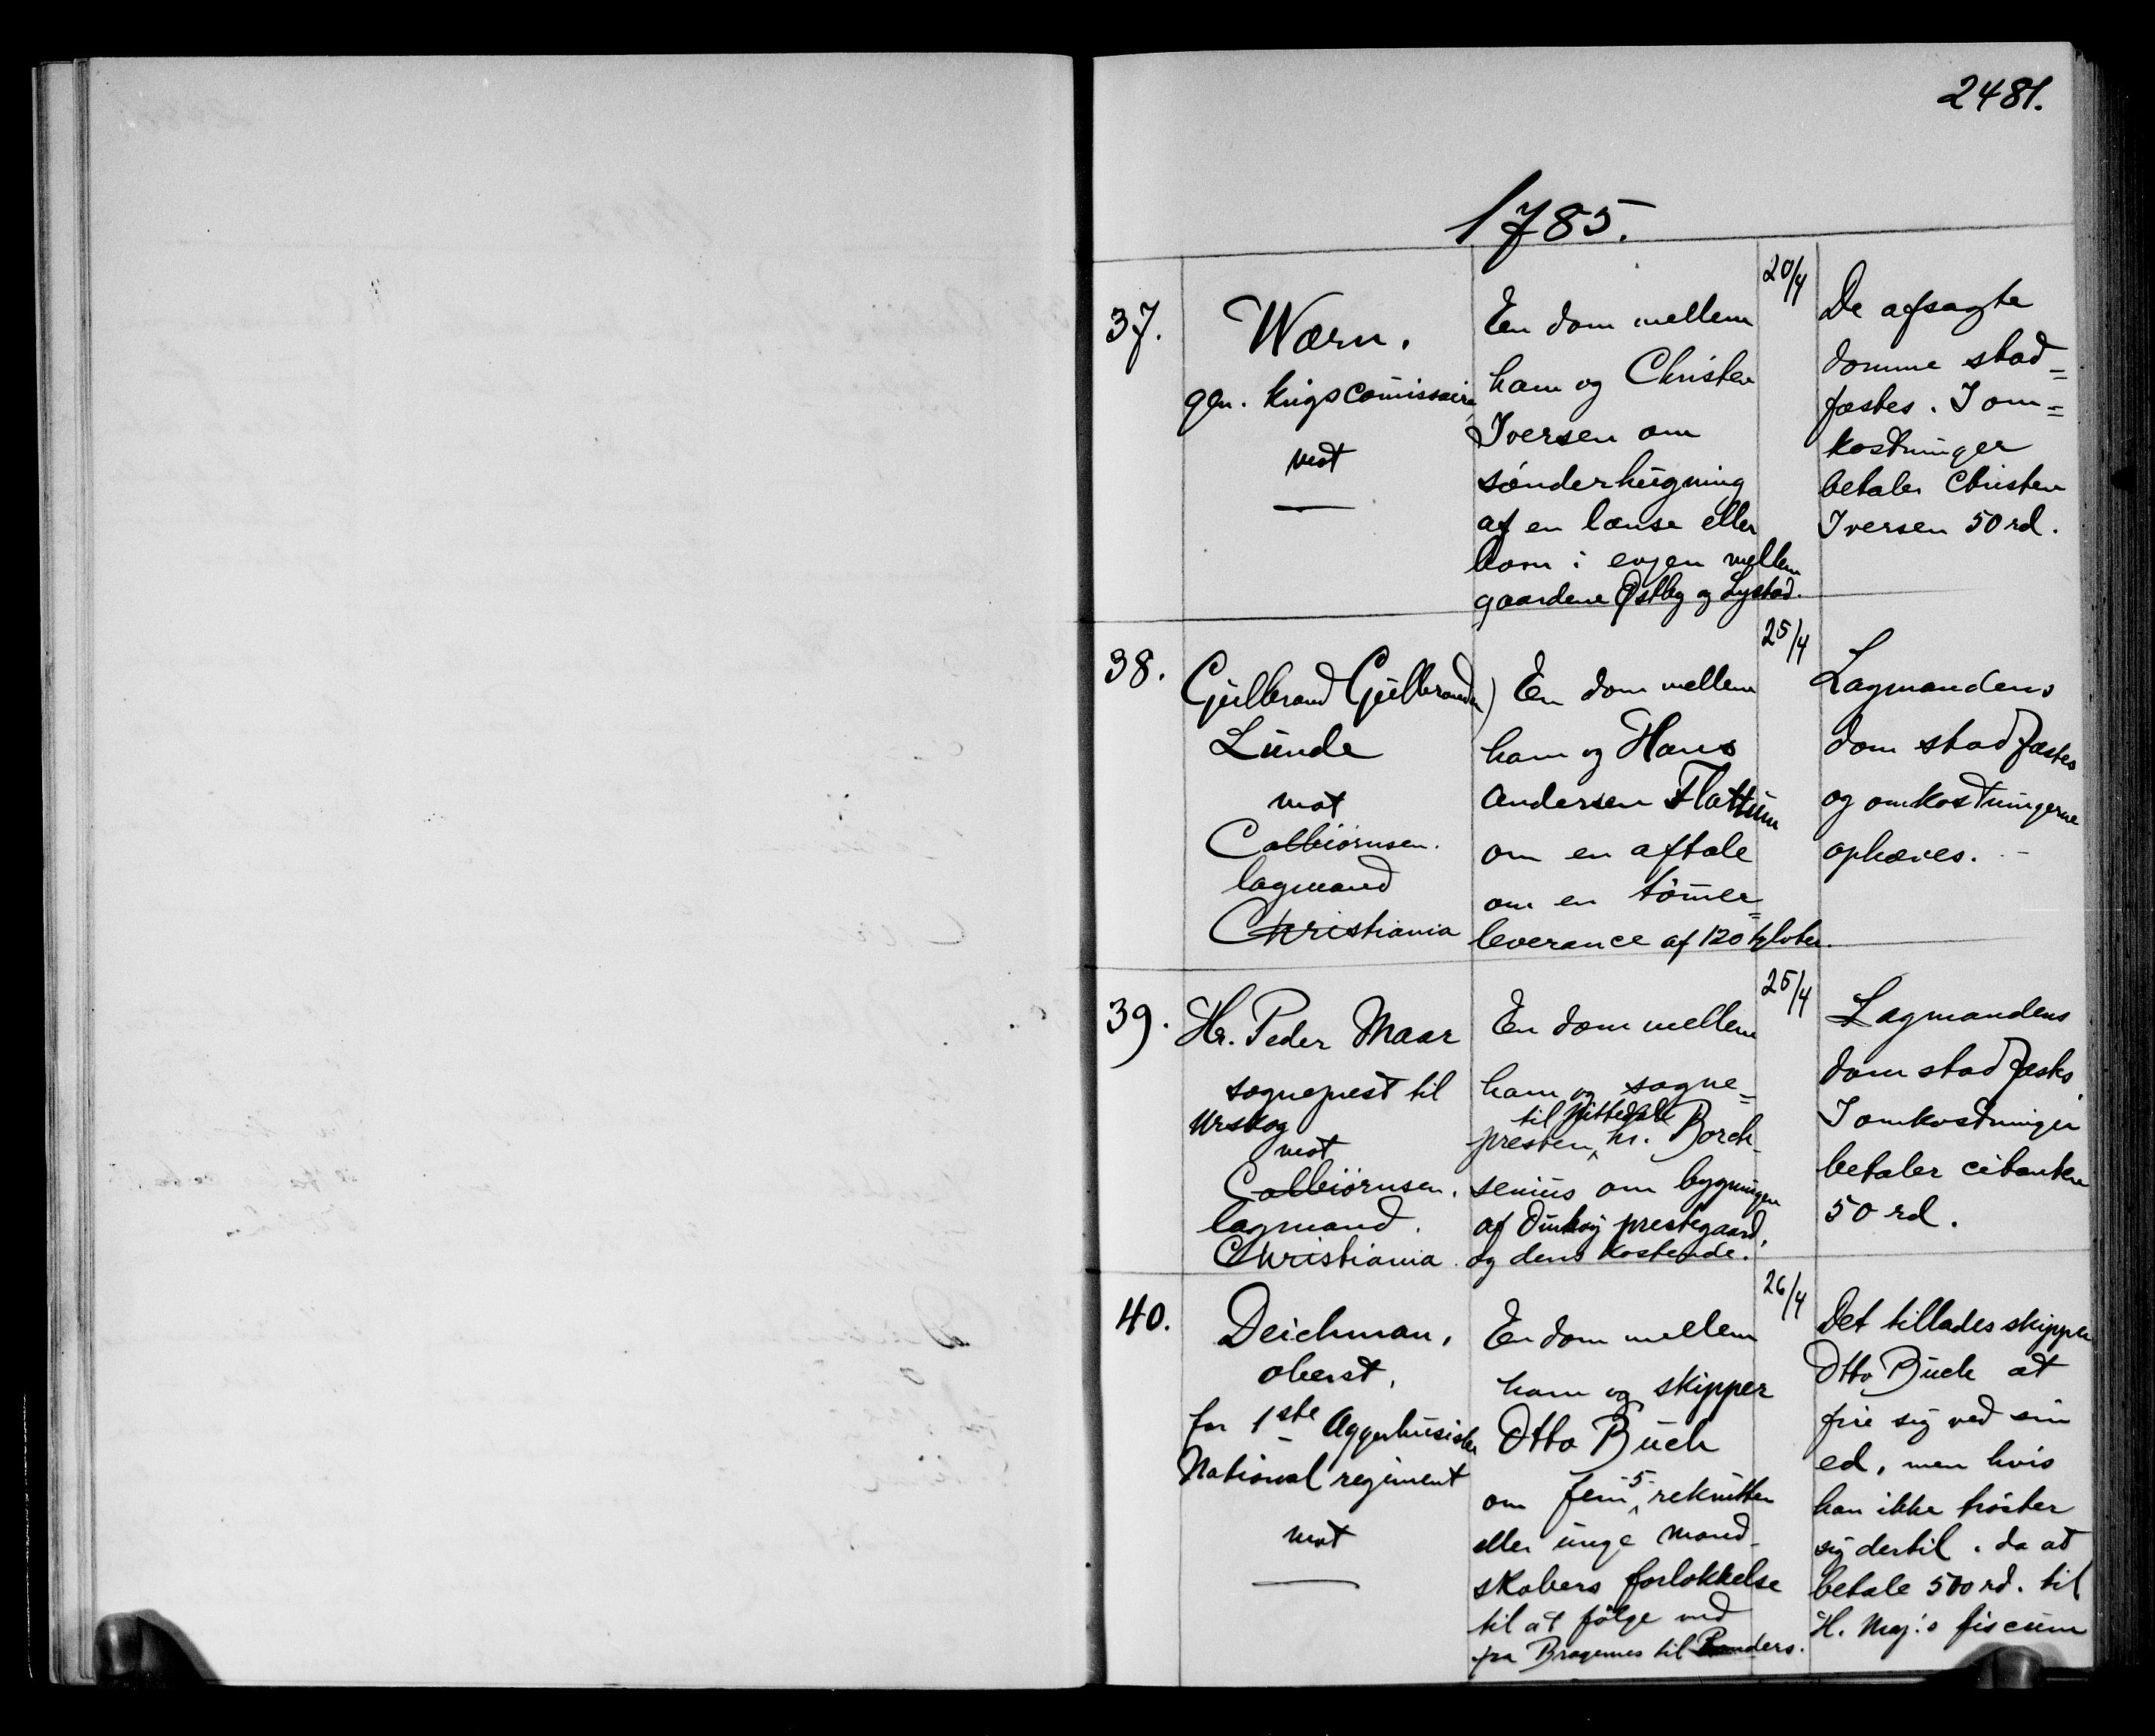 2481.
1785.
37.
Wærn.
gen. krigscom̄issaire
mot
—
En dom mellem
ham og Christen
Iversen om
sønderhugning
af en lænse eller
bom i evjen mellem
gaardene Østby og Lystad.
20/4
De afsagte
domme stad=
fæstes. I om=
kostninger
betaler Christen
Iversen 50 rd.
38.
Gulbrand Gulbrandsen
Lunde
mot
Colbiørnsen.
lagmand
Christiania
En dom mellem
ham og Hans
Andersen Flattum
om en aftale
om en tøm̄er=
leverance af 120 tylvter.
25/4
Lagmandens
dom stadfæstes
og omkostningerne
ophæves. -
39.
Hr. Peder Maar
sogneprest til
Urskog
mot
Colbiørnsen.
lagmand.
Christiania.
En dom mellem
ham og sogne=
til Nittedal
presten hr. Borch-
senius om bygningen
af prestegaard,
og dens kostende.
25/4
Lagmandens
dom stadfæstes
I omkostninger
betaler citanten
50 rd.
40.
Deichman,
oberst,
for 1ste Aggerhusiske
National regiment
mot
—
En dom mellem
ham og skipper
Otto Buch
om fem 5 rekrutter
eller unge mand-
skabers forlokkelse
til at følge med
fra Bragernes til Randers.
26/4
Det tillades skipper
Otto Buch at
frie sig ved sin
ed, men hvis
han ikke trøster
sig dertil, da at
betale 500 rd. til
H. Maj:s fiscum